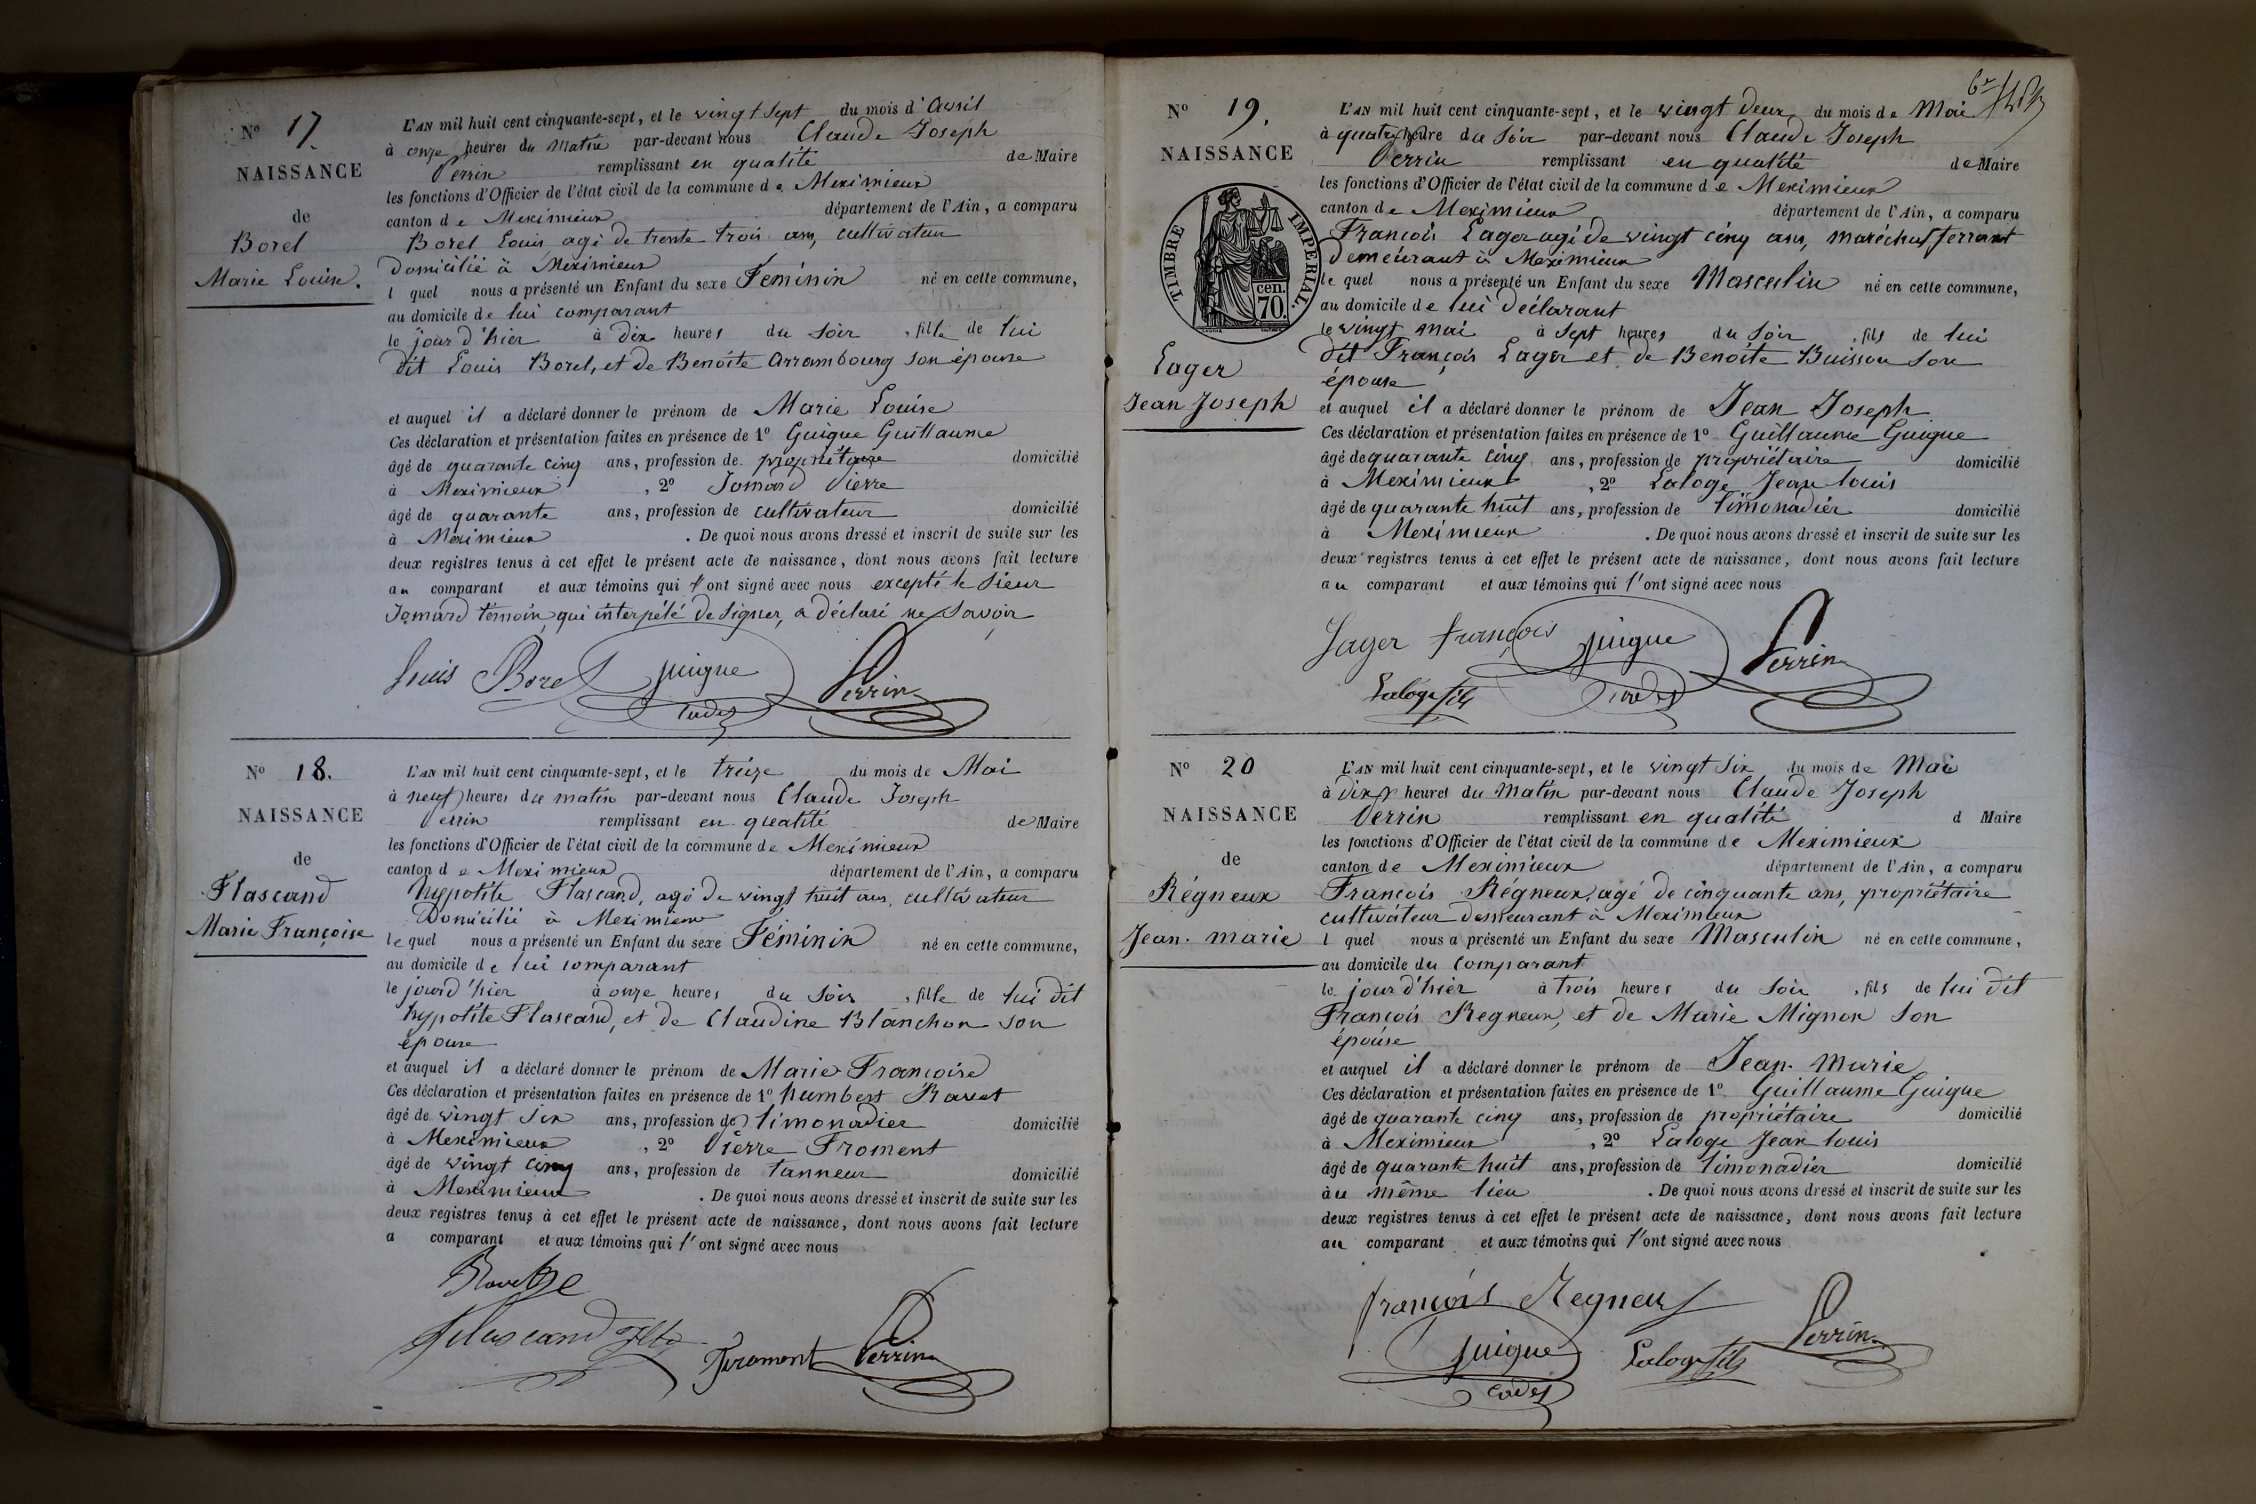 N° 17.
NAISSANCE
de
Borel
Marie Louise.
L'AN mil huit cent cinquante-sept, et le vingt sept du mois d'avril
à onze heures du matin par-devant nous Claude Joseph
Perrin remplissant en qualité de Maire
les fonctions d'Officier de l'état civil de la commune de Meximieux
canton de Meximieux département de l'Ain, a comparu
Borel Louis agé de trente trois ans, cultivateur
domicilié à Meximieux
l quel nous a présenté un Enfant du sexe Féminin né en cette commune,
au domicile de lui comparant
le jour d'hier à dix heures du soir, fille de lui
dit Louis Borel, et de Benoite Arrambourg son épouse
et auquel il a déclaré donner le prénom de Marie Louise
Ces déclaration et présentation faites en présence de 1° Guigue Guillaume
âgé de quarante cinq ans, profession de propriétaire domicilié
à Meximieux, 2° Jomard Pierre
âgé de quarante ans, profession de cultivateur domicilié
à Meximieux. De quoi nous avons dressé et inscrit de suite sur les
deux registres tenus à cet effet le présent acte de naissance, dont nous avons fait lecture
au comparant et aux témoins qui l'ont signé avec nous excepté le sieur
Jomard témoin, qui interpélé de signer, a déclaré ne savoir
Louis Borel Guigue Perrin
N° 18.
NAISSANCE
de
Flascand
Marie Françoise
L'AN mil huit cent cinquante-sept, et le treize du mois de Mai
à neuf heures du matin par-devant nous Claude Joseph
Perrin remplissant en qualité de Maire
les fonctions d'Officier de l'état civil de la commune de Meximieux
canton de Meximieux département de l'Ain, a comparu
hypolite Flascand, agé de vingt huit ans, cultivateur
Domicilié à Meximieux
le quel nous a présenté un Enfant du sexe Féminin né en cette commune,
au domicile de lui comparant
le jour d'hier à onze heures du soir, fille de lui dit
hypolite Flascand, et de Claudine Blanchon son
épouse
et auquel il a déclaré donner le prénom de Marie Françoise
Ces déclaration et présentation faites en présence de 1° humbert Ravet
âgé de vingt six ans, profession de limonadier domicilié
à Meximieux, 2° Pierre Froment
âgé de vingt cinq ans, profession de tanneur domicilié
à Meximieux. De quoi nous avons dressé et inscrit de suite sur les
deux registres tenus à cet effet le présent acte de naissance, dont nous avons fait lecture
a comparant et aux témoins qui l'ont signé avec nous
Flascand
Froment Perrin
N° 19.
NAISSANCE
TIMBRE IMPERIAL.
cen.
70.
Lager
Jean Joseph
L'AN mil huit cent cinquante-sept, et le vingt deux du mois de Mai
à quatre heure du soir par-devant nous Claude Joseph
Perrin remplissant en qualité de Maire
les fonctions d'Officier de l'état civil de la commune de Meximieux
canton de Meximieux département de l'Ain, a comparu
François Lager agé de vingt cinq ans, maréchal ferrant
demeurant à Meximieux
le quel nous a présenté un Enfant du sexe Masculin né en cette commune,
au domicile de lui déclarant
le vingt mai à sept heures du soir, fils de lui
dit François Lager et de Benoite Buisson son
épouse
et auquel il a déclaré donner le prénom de Jean Joseph
Ces déclaration et présentation faites en présence de 1° Guillaume Guigue
âgé de quarante cinq ans, profession de propriétaire domicilié
à Meximieux, 2° Laloge Jean louis
âgé de quarante huit ans, profession de limonadier domicilié
à Meximieux. De quoi nous avons dressé et inscrit de suite sur les
deux registres tenus à cet effet le présent acte de naissance, dont nous avons fait lecture
au comparant et aux témoins qui l'ont signé avec nous
Lager françois Guigue Perrin
Laloge fils
N° 20
NAISSANCE
de
Régneux
Jean. marie
L'AN mil huit cent cinquante-sept, et le vingt six du mois de Mai
à dix heures du Matin par-devant nous Claude Joseph
Perrin remplissant en qualité d Maire
les fonctions d'Officier de l'état civil de la commune de Meximieux
canton de Meximieux département de l'Ain, a comparu
François Régneux, agé de cinquante ans, propriétaire
cultivateur demeurant à Meximieux
l quel nous a présenté un Enfant du sexe Masculin né en cette commune,
au domicile du comparant
le jour d'hier à trois heures du soir, fils de lui dit
François Regneux, et de Marie Mignon son
épouse
et auquel il a déclaré donner le prénom de Jean. Marie
Ces déclaration et présentation faites en présence de 1° Guillaume Guigue
âgé de quarante cinq ans, profession de propriétaire domicilié
à Meximieux, 2° Laloge Jean louis
âgé de quarante huit ans, profession de limonadier domicilié
au même lieu. De quoi nous avons dressé et inscrit de suite sur les
deux registres tenus à cet effet le présent acte de naissance, dont nous avons fait lecture
au comparant et aux témoins qui l'ont signé avec nous
françois Regneux Perrin
Guigue Laloge fils